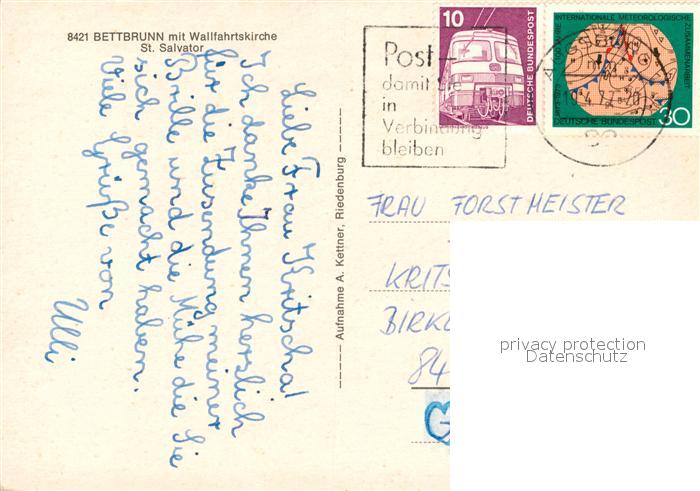 8421 BETTBRUNN mit Wallfahrtskirche
St. Salvator
Liebe Frau Kritscha!
Ich danke Ihnen herzlich
für die Zusendung meiner
Brille und die Mühe die Sie
sich gemacht haben.
Viele Grüße von
Ulli
Aufnahme A. Kettner, Riedenburg
Post-
damit Sie
in
Verbindung
bleiben
10
DEUTSCHE BUNDESPOST
INTERNATIONALE METEOROLOGISCHE
ZUSAMMENARBEIT
DEUTSCHE BUNDESPOST
30
FRAU FORSTMEISTER
KRITS
BIRKL
84
privacy protection
Datenschutz